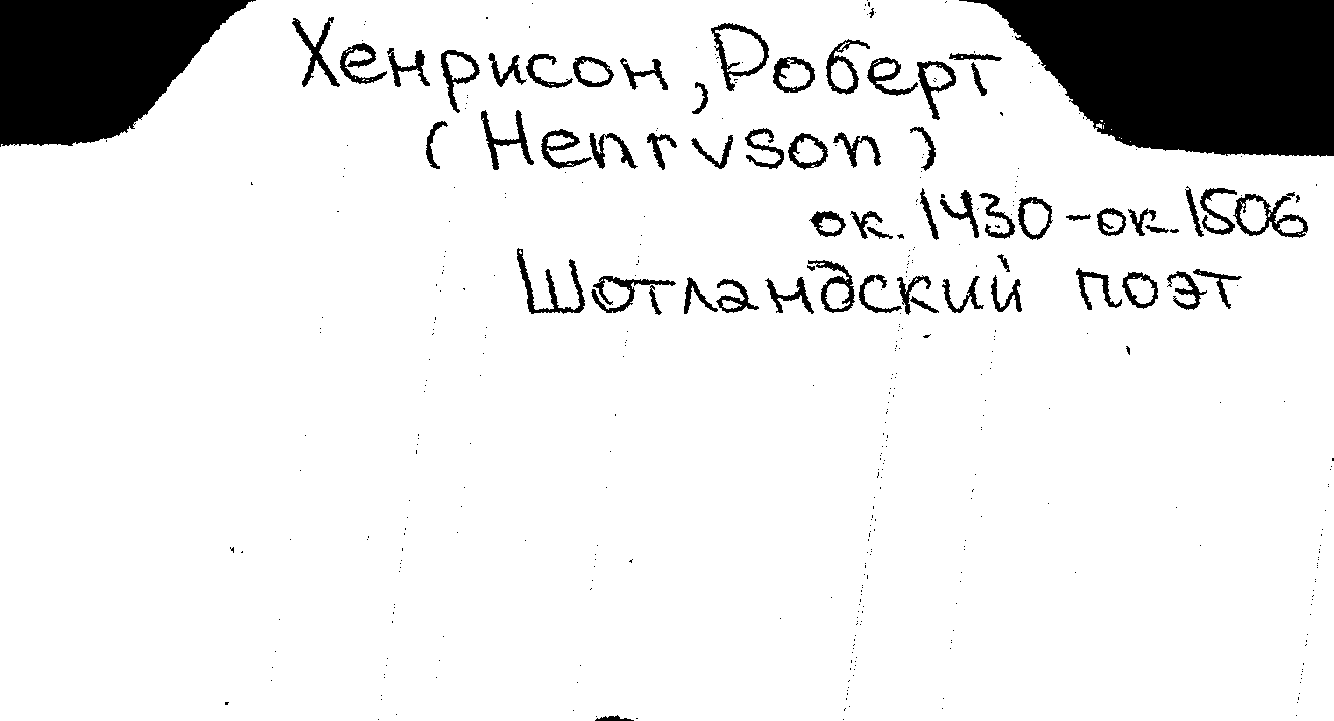 Хенрисон, Роберт
(Henrvson)
ок. 1430-ок. 1506
Шотландский поэт